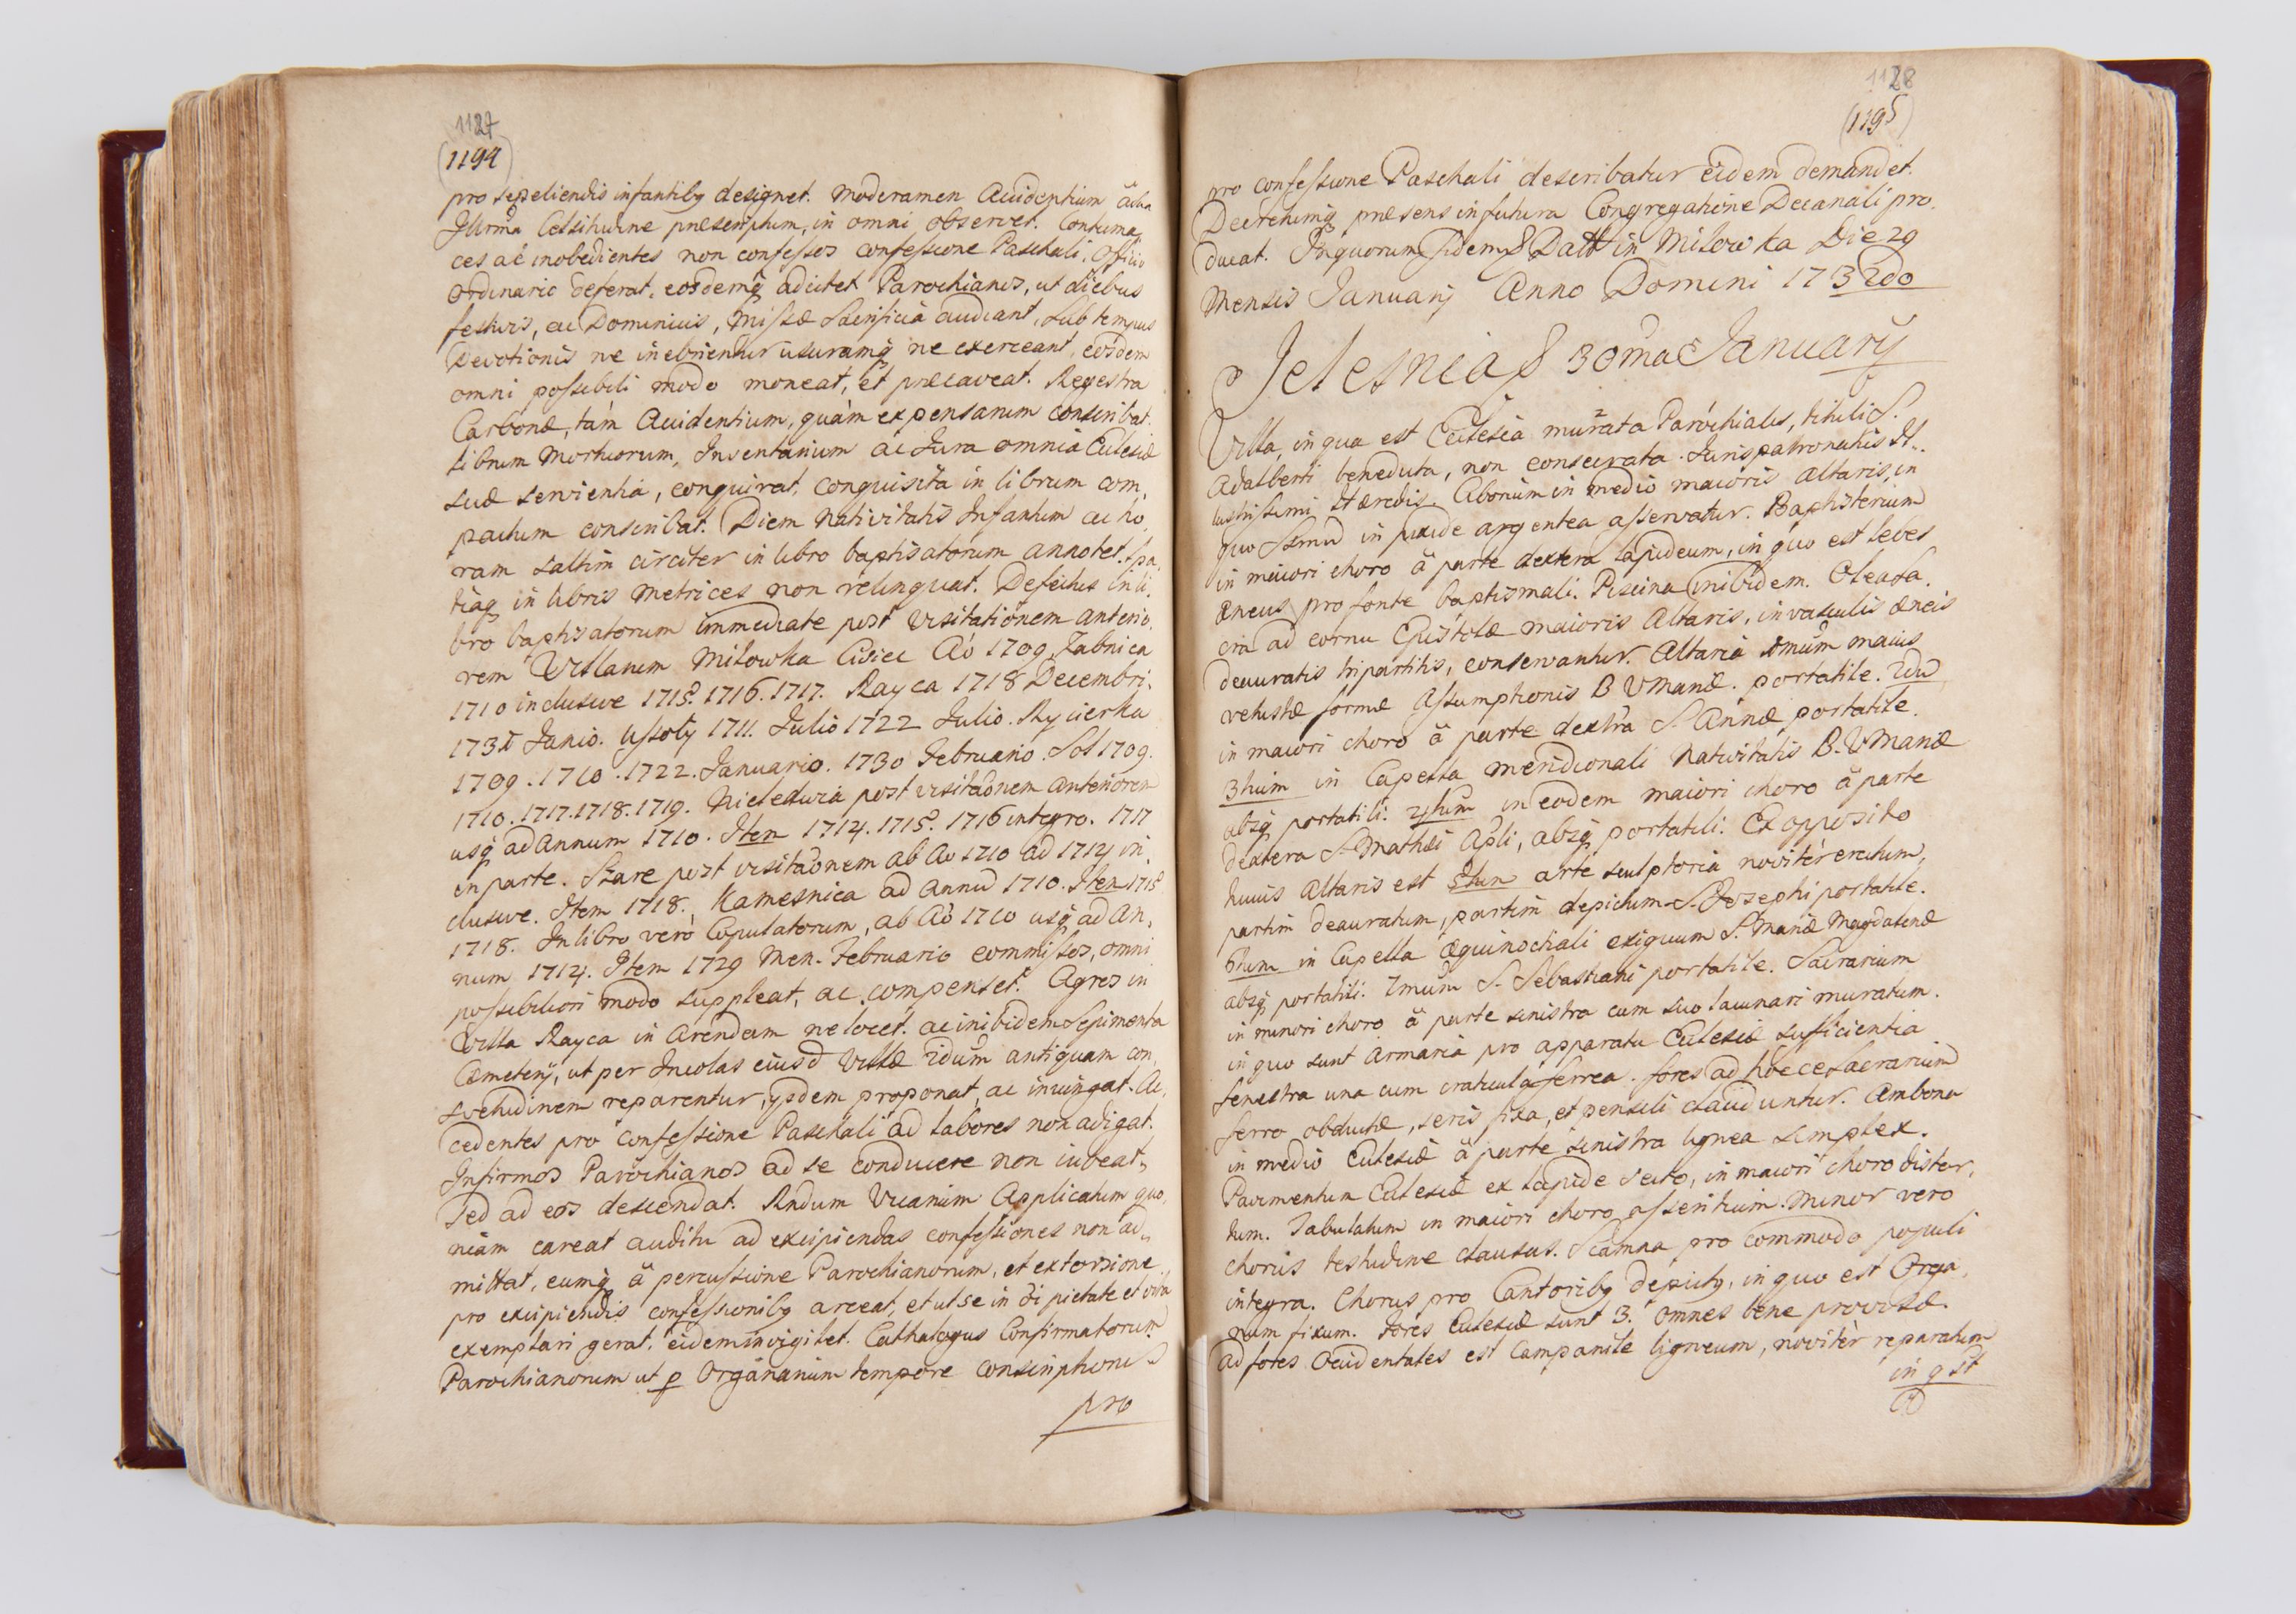 1127
(1194)
pro sepeliendis infantibq designet. Moderamen Accidentium ab
Illrma Celsitudine præscriptum, in omni observet. Contuma,
ces ac inobedientes non confessos confessione Paschali, Officio
Ordinario deferat, eosdemq adcitet Parochianos, ut diebus
festivis, ac Dominicis, Missæ Sacrificia audiant, Sub tempus
Devotionis ne inebrientur usuramq ne exerceant, eosdem
omni possibili modo moneat, et præcaveat. Regestra
Carbonæ, tam Accidentium, quàm expensarum conscribat.
Librum Mortuorum, Inventarium ac Jura omnia Ecclesiæ
suæ servientia, conquirat, conquisita in librum com,
pactum conscribat. Diem Nativitatis Infantum ac ho,
ram saltim circiter in libro baptisatorum annotet. Spa,
tiaq in libris Metrices non relinquat. Defectus in li,
bro baptisatorum immediate post Visitationem anterio,
rem Villarum Milowka Cisiec Aò 1709, Zabnica
1710 inclusive 1715. 1716. 1717. Rayca 1718 Decembri.
1731 Junio. Ussoly 1711. Julio 1722 Julio. Rycierka
1709. 1710. 1722. Januario. 1730 Februario. Sol 1709.
1710. 1717. 1718. 1719. Nieledwia post visitaonem anteriorem
usq ad Annum 1710. Item 1714. 1715. 1716 integro. 1717
in parte. Szare post visitaonem ab Ao 1710 ad 1714 in,
clusive. Item 1718. Kamesnica ad Annu 1710. Item 1715
1718. In libro verò Copulatorum, ab Aò 1710 usq ad An,
num 1714. Item 1729 Men. Februario commissos, omni
possibiliori modo suppleat, ac compenset. Agros in
Villa Rayca in Arendam ne locet. ac inibidem Sepimenta
Cæmeterij, ut per Incolas eiusd Villæ iidum antiquam con,
svetudinem reparentur, ijsdem proponat, ac iniungat. Ac,
cedentes pro Confessione Paschali ad labores non adigat.
Infirmos Parochianos ad se conducere non iubeat,
Sed ad eos descendat. Rndum Vicarium Applicatum quo,
niam careat auditu ad excipiendas confessiones non ad,
mittat, eumq à percussione Parochianorum, et extorsione
pro excipiendis confessionibq arceat, et ut se in Di pietate et vita
exemplari gerat, eidem invigilet. Cathalogus Confirmatorum
Parochianorum ut p Organarium tempore conscriptionis
pro
1128
(1195)
pro confessione Paschali describatur eidem demandet.
Decretumq præsens in futura Congregatione Decanali pro,
ducat. In quorum fidem Datt in Milowka Die 29
Mensis Januarij Anno Domini 1732do
Jelesnia 30ma Januarij
Villa, in qua est Ecclesia murata Parochialis, tituli S.
Adalberti benedicta, non consecrata. Jurispatronatus Il,
lustrissimi Hæredis. Cborium in medio maioris Altaris, in
quo SSmu in pixide argentea asservatur. Baptisterium
in maiori choro à parte dextera lapideum, in quo est lebes
æneus pro fonte baptismali. Piscina inibidem. Oleasa,
cra ad cornu Epistolæ maioris Altaris, in vasculis æneis
deauratis tripartitis, conservantur. Altaria 1mum maius
vetustæ formæ Assumptionis B V Mariæ. portatile. 2du
in maiori choro à parte dextra S. Annæ portatile.
3tium in Capella meridionali Nativitatis B. V Mariæ
absq portatili. 4tum in eodem maiori choro à parte
dextera S. Mathæi Apli, absq portatili. Ex opposito
huius Altaris est 5tum arte sculptoria noviter erectum,
partim deauratum, partim depictum S. Josephi portatile.
6tum in Capella æquinoctiali exiguum S. Mariæ Magdalenæ
absq portatili. 7mum S. Sebastiani portatile. Sacrarium
in minori choro à parte sinistra cum suo lacunari muratum.
in quo sunt Armaria pro apparatu Ecclesiæ sufficientia
fenestra una cum craticula ferrea. fores ad hocce Sacrarium
ferro obductæ, seris fixa, et pensili clauduntur. Ambona
in medio Ecclesiæ à parte sinistra lignea simplex.
Pavimentum Ecclesiæ ex lapide Secto, in maiori choro distor,
tum. Tabulatum in maiori choro asseritium. Minor vero
chorus testudine clausus. Scamna pro commodo populi
integra. Chorus pro Cantoribq depictq, in quo est Orga,
num fixum. Fores Ecclesiæ sunt 3. omnes bene provisæ.
Ad fores Occidentales est Campanile ligneum, noviter reparatum
in q st